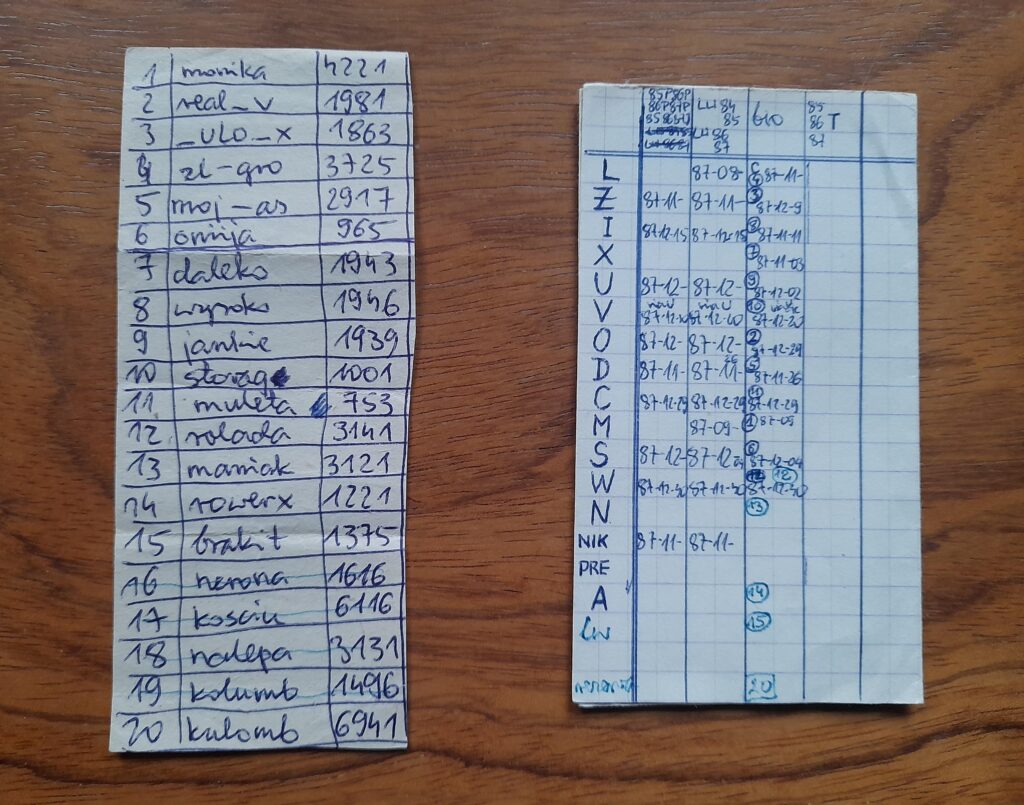 1 monika 4221
2 real_v 1981
3 _ULO_x 1863
4 zl-gro 3725
5 moj-as 2917
6 omija 965
7 daleko 1943
8 wysoko 1946
9 jankie 1939
10 storage 1001
11 muleta 753
12 rolada 3141
13 maniak 3121
14 rowerx 1221
15 brakit 1375
16 nerona 1616
17 kosciu 6116
18 nalepa 3131
19 kolumb 1496
20 kalomb 6941
85P86P
86P87P LU 84 85
85 85 86 T
86 87
87
L 87-08- 87-11-
Z 87-11- 87-11- 87-12-9
I 87-12-15 87-12-15 87-11-11
X 7 87-11-03
U 87-12- 87-12- 9 87-12-02
V 87-12-20 87-12-20 10 87-12-20
O 87-12- 87-12- 2 87-12-29
D 87-11- 87-11- 87-11-26
C 87-12-29 87-12-29 11 87-12-29
M 87-09- 1 87-09
S 87-12- 87-12 6 87-12-04
W 87-12-30 87-12-30 12 87-12-30
N 13
NIK 87-11- 87-11-
PRE
A 14
Lw 15
20